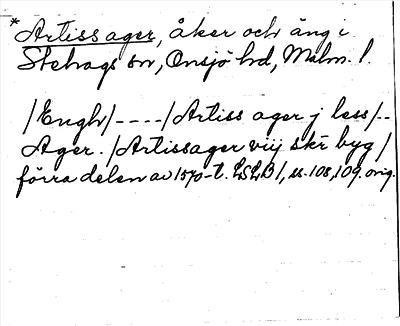 * Artiss ager, åker och äng i
Stehags sn, Onsjö hd, Malm. l.
/Engh/----/Artiss ager j less/--
Ager. /Artissager viij skr byg/
förra delen av 1570-t. LSLB 1, s. 108, 109. orig.